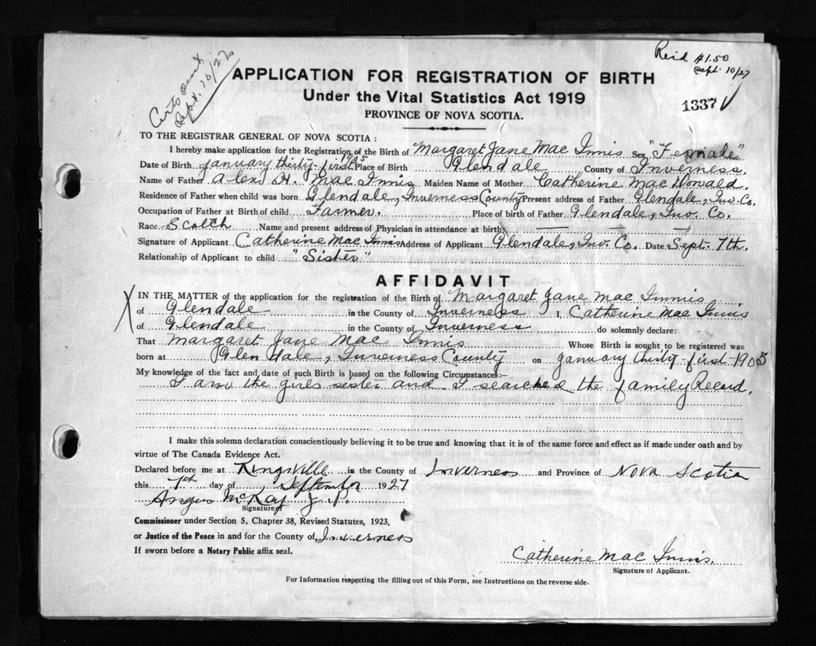 Certs sent Sept. 10/27
Reid $1.50
Sept. 10/27
APPLICATION FOR REGISTRATION OF BIRTH
Under the Vital Statistics Act 1919
PROVINCE OF NOVA SCOTIA.
1337
TO THE REGISTRAR GENERAL OF NOVA SCOTIA :
I hereby make application for the Registration of the Birth of Margaret Jane Mac Innis Sex "Female"
Date of Birth January thirty-first 1905 Place of Birth Glendale County of Inverness.
Name of Father Alex H. Mac Innis Maiden Name of Mother Catherine MacDonald.
Residence of Father when child was born Glendale, Inverness County Present address of Father Glendale, Inv. Co.
Occupation of Father at Birth of child Farmer. Place of birth of Father Glendale, Inv. Co.
Race Scotch Name and present address of Physician in attendance at birth — — — —
Signature of Applicant Catherine Mac Innis Address of Applicant Glendale, Inv. Co. Date Sept. 7th.
Relationship of Applicant to child "Sister"
AFFIDAVIT
X
IN THE MATTER of the application for the registration of the Birth of Margaret Jane Mac Innis
of Glendale in the County of Inverness I, Catherine Mac Innis
of Glendale in the County of Inverness do solemnly declare:
That Margaret Jane Mac Innis Whose Birth is sought to be registered was
born at Glendale, Inverness County on January thirty-first 1905
My knowledge of the fact and date of such Birth is based on the following Circumstances:-
I am the girls sister and I searched the family Record.
I make this solemn declaration conscientiously believing it to be true and knowing that it is of the same force and effect as if made under oath and by
virtue of The Canada Evidence Act.
Declared before me at Kingsville in the County of Inverness and Province of Nova Scotia
this 7th day of September 1927
Angus McKay J. P.
Signature of
Commissioner under Section 5, Chapter 38, Revised Statutes, 1923,
or Justice of the Peace in and for the County of Inverness
If sworn before a Notary Public affix seal.
Catherine Mac Innis.
Signature of Applicant.
For Information respecting the filling out of this Form, see Instructions on the reverse side.